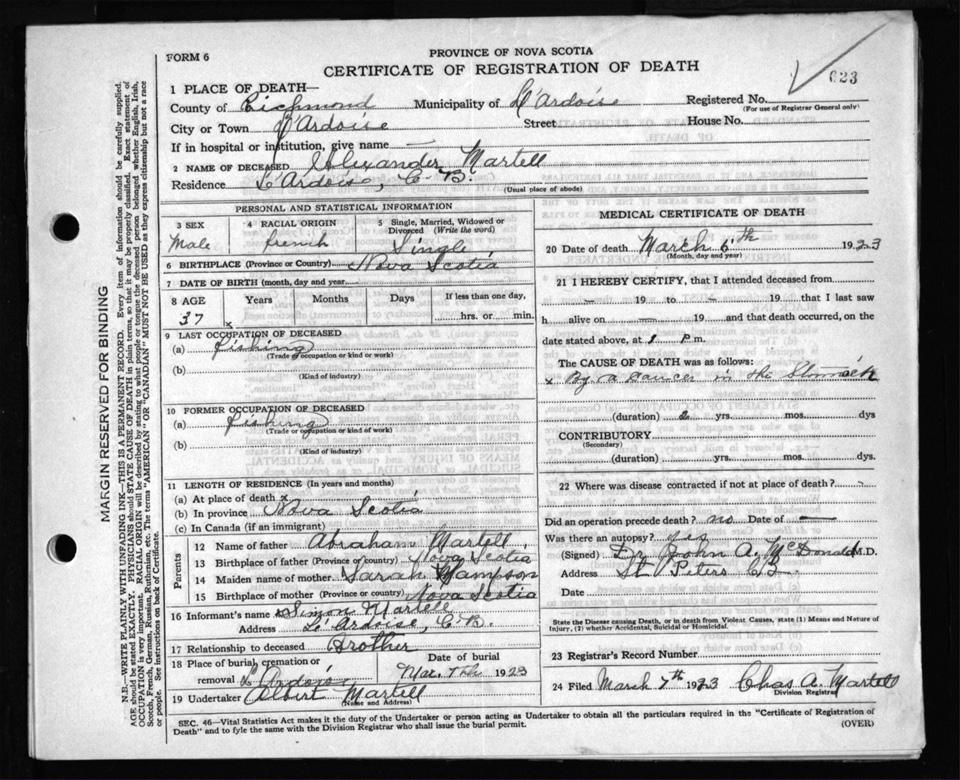 FORM 6
PROVINCE OF NOVA SCOTIA
CERTIFICATE OF REGISTRATION OF DEATH
623
1 PLACE OF DEATH—
County of Richmond Municipality of L'Ardoise Registered No.
(For use of Registrar General only)
City or Town L'Ardoise Street House No.
If in hospital or institution, give name —
2 NAME OF DECEASED Alexander Martell
Residence L'Ardoise, C. B.
(Usual place of abode)
PERSONAL AND STATISTICAL INFORMATION
3 SEX
Male
4 RACIAL ORIGIN
french
5 Single, Married, Widowed or Divorced (Write the word)
Single
6 BIRTHPLACE (Province or Country) Nova Scotia
7 DATE OF BIRTH (month, day and year)
8 AGE Years Months Days If less than one day,
37 x hrs. or min.
9 LAST OCCUPATION OF DECEASED
(a) fishing
(Trade or occupation or kind or work)
(b)
(Kind of industry)
10 FORMER OCCUPATION OF DECEASED
(a) fishing
(Trade or occupation or kind of work)
(b)
(Kind of industry)
11 LENGTH OF RESIDENCE (In years and months)
(a) At place of death x
(b) In province Nova Scotia
(c) In Canada (if an immigrant)
Parents
12 Name of father Abraham Martell
13 Birthplace of father (Province or country) Nova Scotia
14 Maiden name of mother Sarah Mampson
15 Birthplace of mother (Province or country) Nova Scotia
16 Informant's name x Simon Martell
Address L'Ardoise, C. B.
17 Relationship to deceased Brother
18 Place of burial cremation or removal L'Ardoise
Date of burial
Mar. 7th 1923
19 Undertaker Albert Martell
(Name and Address)
MEDICAL CERTIFICATE OF DEATH
20 Date of death March 6th 1923
(Month, day and year)
21 I HEREBY CERTIFY, that I attended deceased from
— 19 to — 19 that I last saw
h alive on — 19 and that death occurred, on
date stated above, at 1 P m.
The CAUSE OF DEATH was as follows:
x By a cancer in the Stomach
(duration) 2 yrs. mos. dys
CONTRIBUTORY
(Secondary)
(duration) yrs. mos. dys
22 Where was disease contracted if not at place of death? -
Did an operation precede death? no Date of —
Was there an autopsy? yes
(Signed) Dr John A. McDonald M.D.
Address St Peters CB
Date
State the Disease causing Death, or in death from Violent Causes, state (1) Means and Nature of
Injury, (2) whether Accidental, Suicidal or Homicidal.
23 Registrar's Record Number
24 Filed March 7th 1923 Chas A. Martell
Division Registrar
SEC. 46—Vital Statistics Act makes it the duty of the Undertaker or person acting as Undertaker to obtain all the particulars required in the "Certificate of Registration of
Death" and to fyle the same with the Division Registrar who shall issue the burial permit.
(OVER)
MARGIN RESERVED FOR BINDING
N.B.—WRITE PLAINLY WITH UNFADING INK—THIS IS A PERMANENT RECORD. Every item of information should be carefully supplied.
AGE should be stated EXACTLY. PHYSICIANS should STATE CAUSE OF DEATH in plain terms, so that it may be properly classified. Exact statement of
OCCUPATION is very important. RACIAL ORIGIN will be described by stating to what people or tongue the deceased person belonged whether English, Irish,
Scotch, French, German, Russian, Ruthenian, etc. The terms "AMERICAN" OR "CANADIAN" MUST NOT BE USED as they express citizenship but not a race
or people. See instructions on back of Certificate.